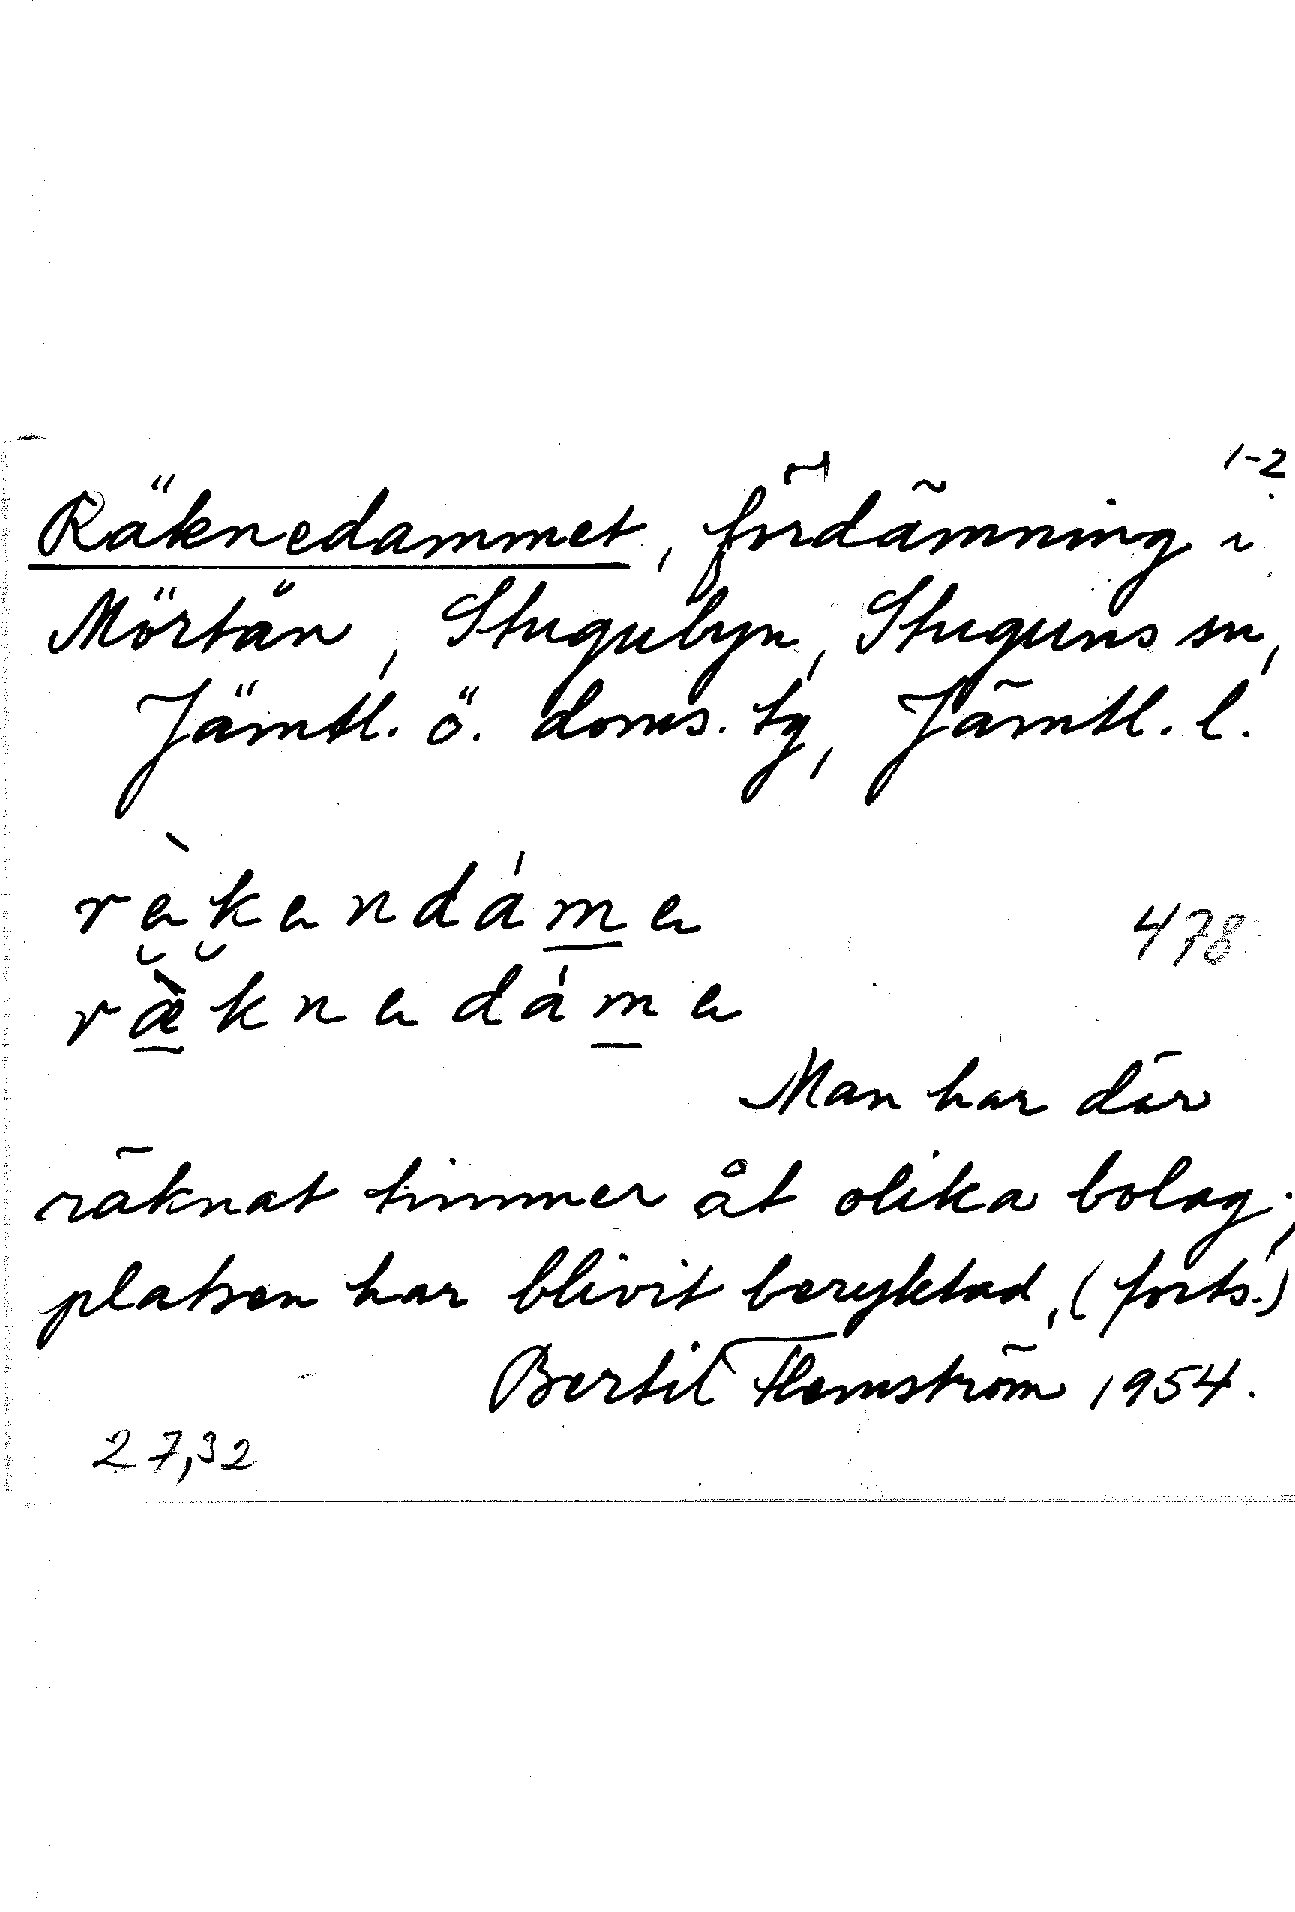 1-2
Räknedammet, fördämning i
Mörtån, Stugubyn, Stuguns sn,
Jämtl. ö. doms. tg, Jämtl. l.
478
Man har där
räknat timmer åt olika bolag;
platsen har blivit beryktad, (forts.)
Bertil Flemström 1954.
27,32